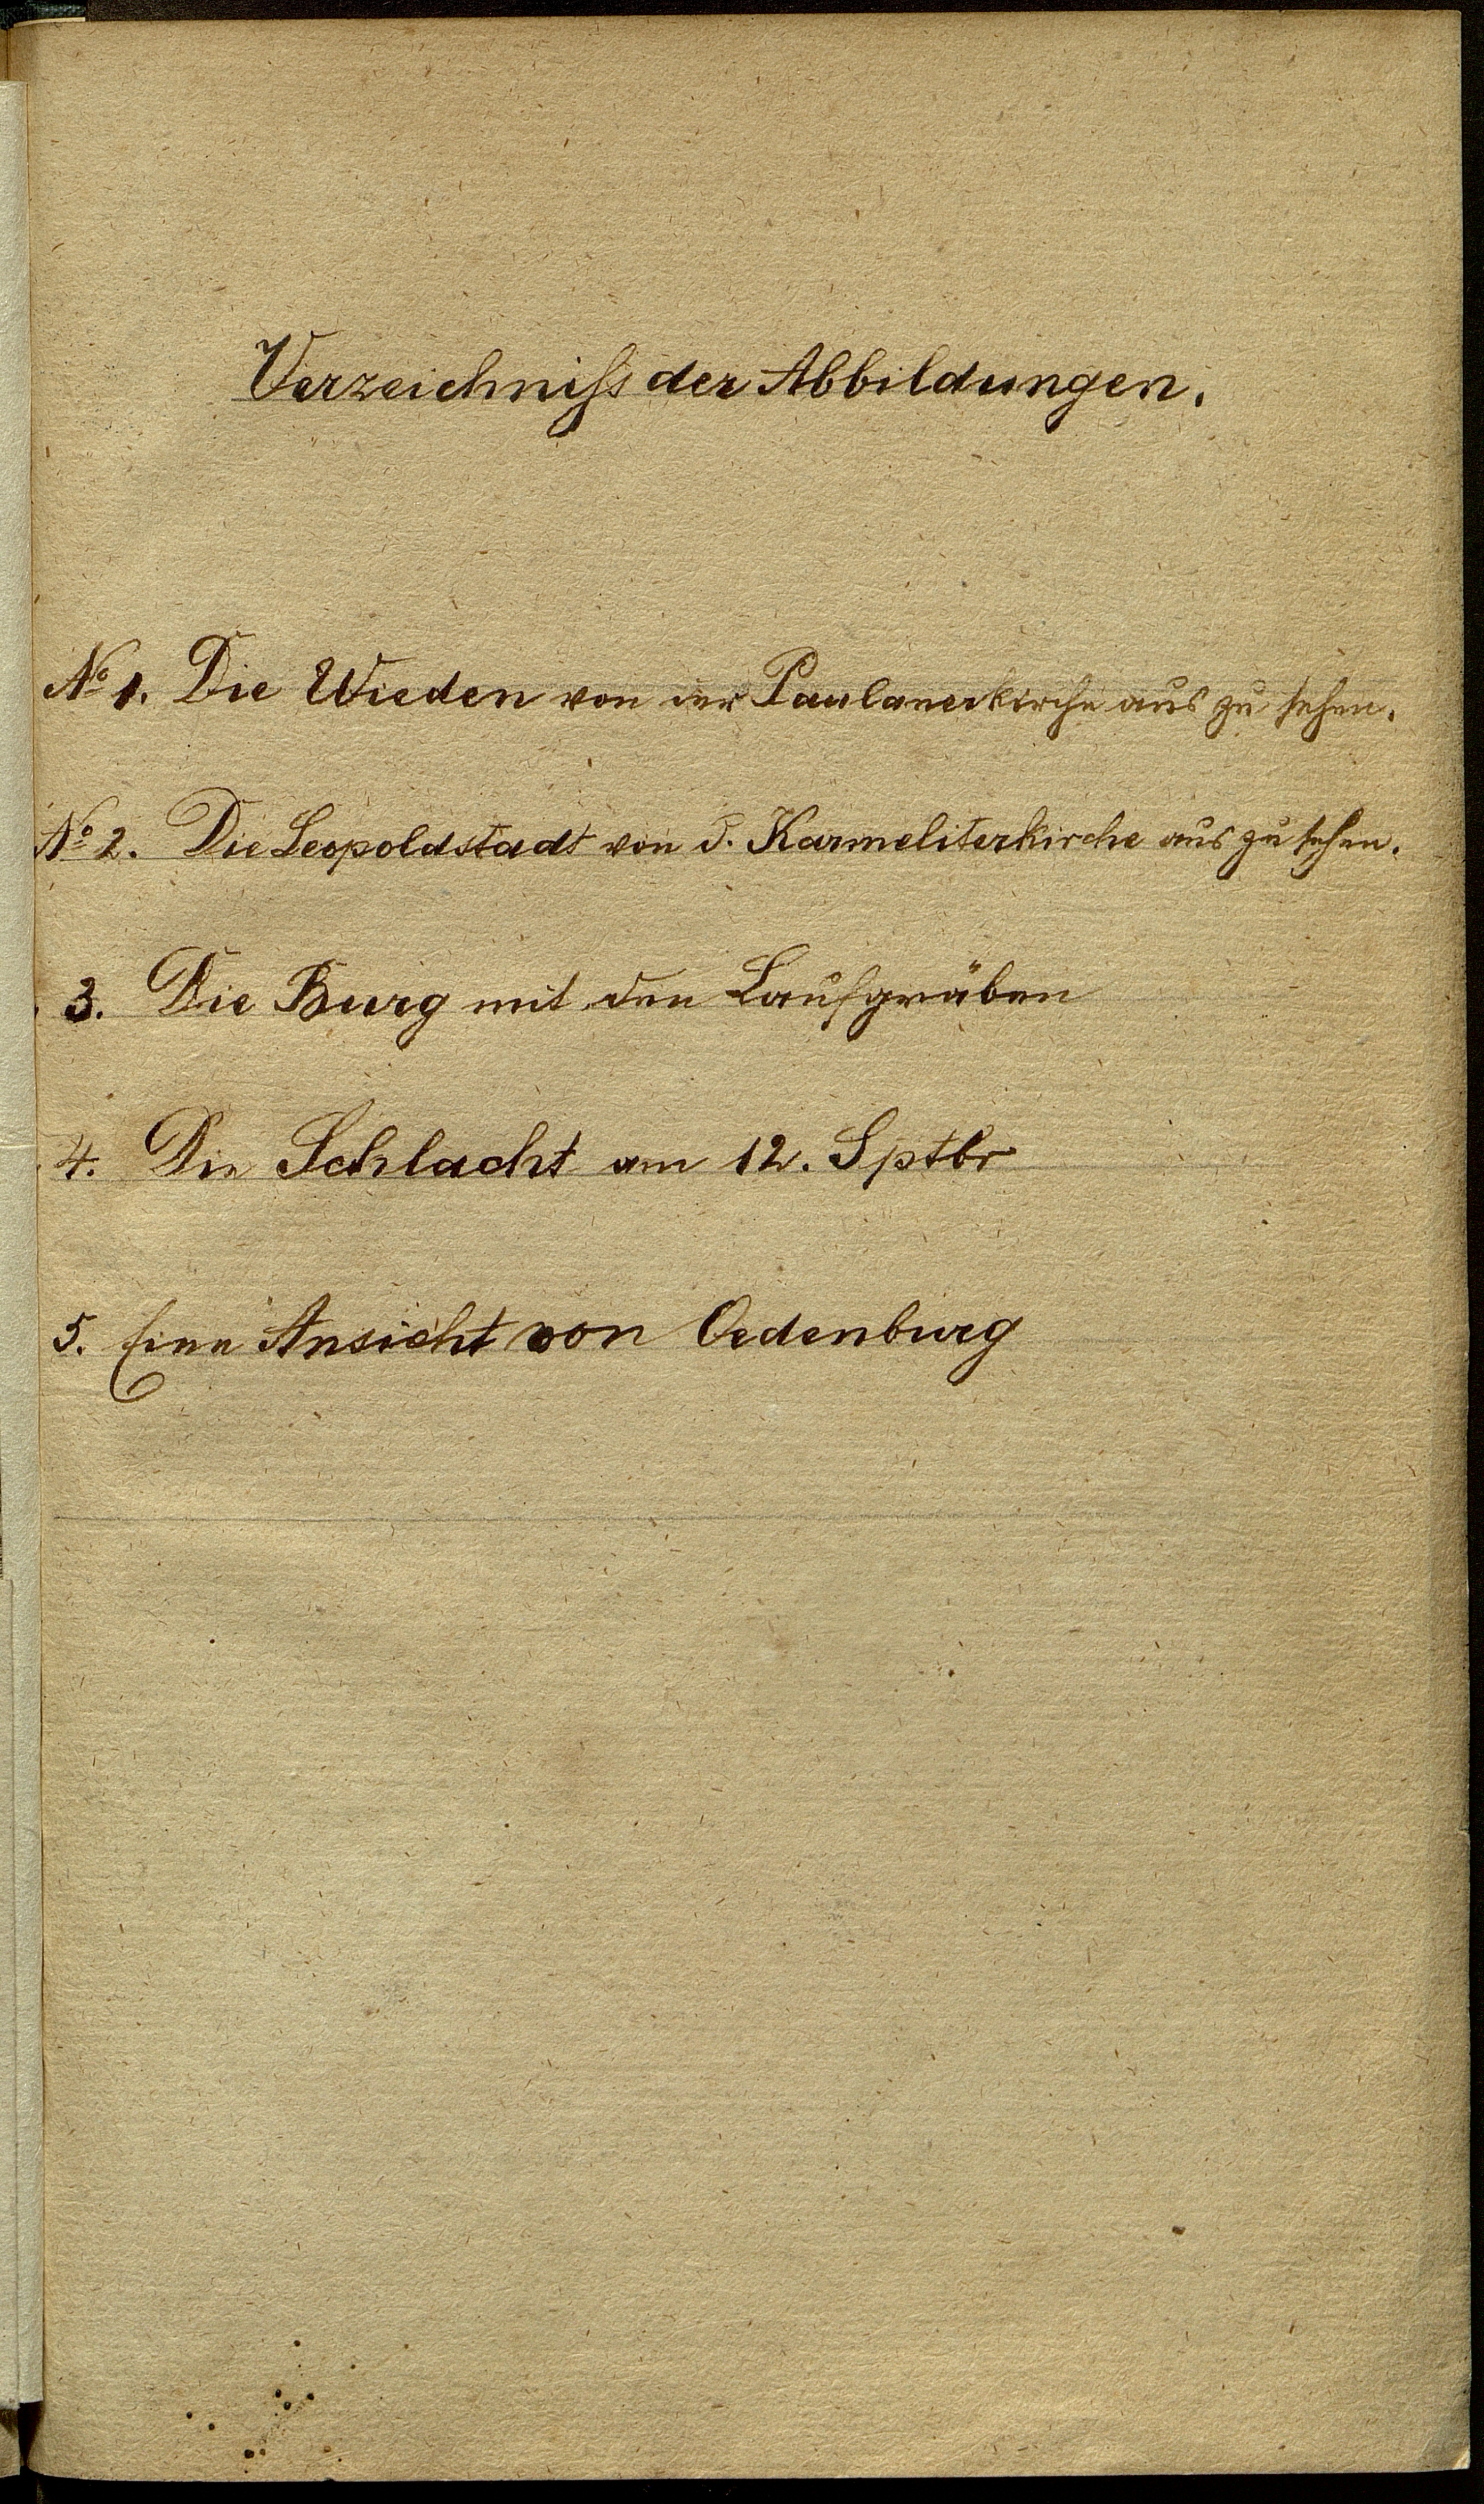 Verzeichniſs der Abbildungen.
№ 1. Die Wieden von der Paulanerkirche aus zu sehen.
№ 2. Die Leopoldstadt von d. Karmeliterkirche aus zu sehen.
3. Die Burg mit den Laufgräben
4. Die Schlacht am 12. Sptbr
5. Eine Ansicht von Oedenburg